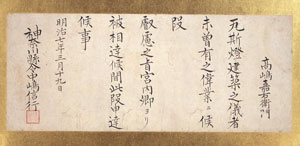 高嶋嘉右衛門
瓦斯燈建築之儀者
未曽有之偉業ニ候
段
叡慮之旨宮内卿ヨリ
被相達候間此段申達
候事
明治七年三月十九日
神奈川縣令中嶋信行